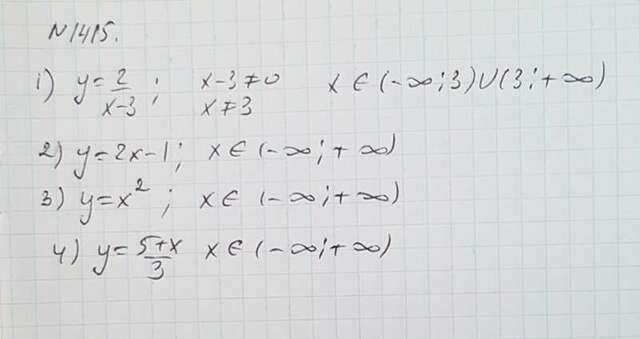 N 1415.
1) y=2/(x-3); x-3≠0 x∈(-∞;3)∪(3;+∞)
x≠3
2) y=2x-1; x∈(-∞;+∞)
3) y=x²; x∈(-∞;+∞)
4) y=(5+x)/3 x∈(-∞;+∞)